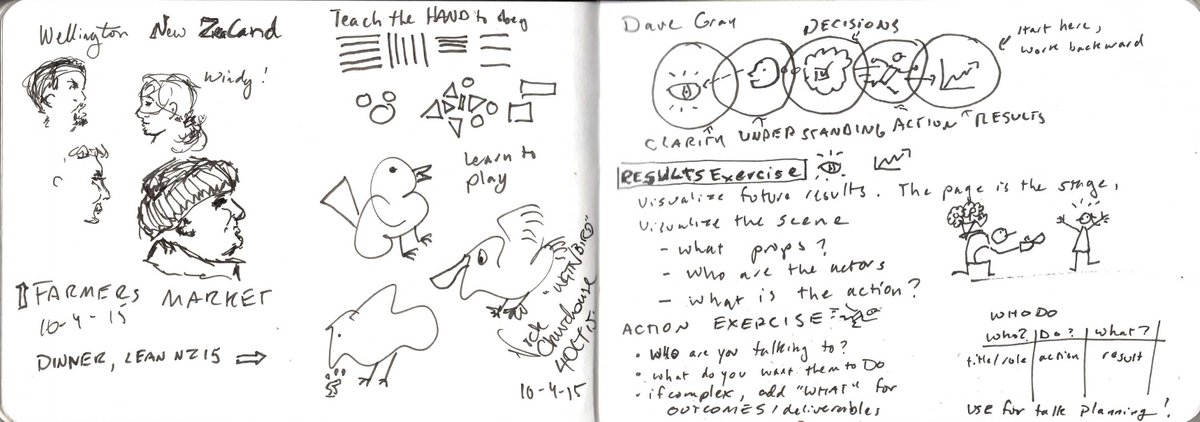 Wellington New Zealand
windy!
FARMERS MARKET
10-4-15
DINNER, LEAN NZ15 ⇒
Teach the HAND to obey
Learn to
play
"WETA BIRD"
Nick
Churchouse
4 OCT 15
10-4-15
Dave Gray
DECISIONS
start here,
work backward
CLARITY UNDERSTANDING ACTION RESULTS
RESULTS Exercise
Visualize future results. The page is the stage,
Visualize the scene
- what props?
- who are the actors
- what is the action?
ACTION EXERCISE:
• WHO are you talking to?
• what do you want them to DO
• if complex, add "WHAT" for
OUTCOMES/deliverables
WHO DO
Who? Do? What?
title/role action result
use for talk planning!